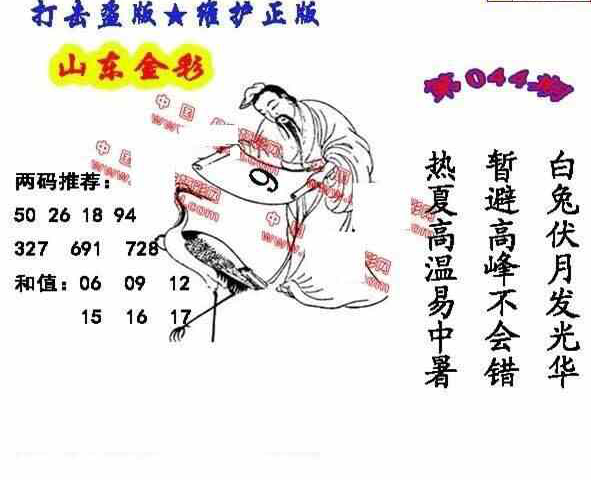 打击盗版★维护正版
山东金彩
第044期
两码推荐：
50 26 18 94
327 691 728
和值：06 09 12
15 16 17
9
白兔伏月发光华
暂避高峰不会错
热夏高温易中暑